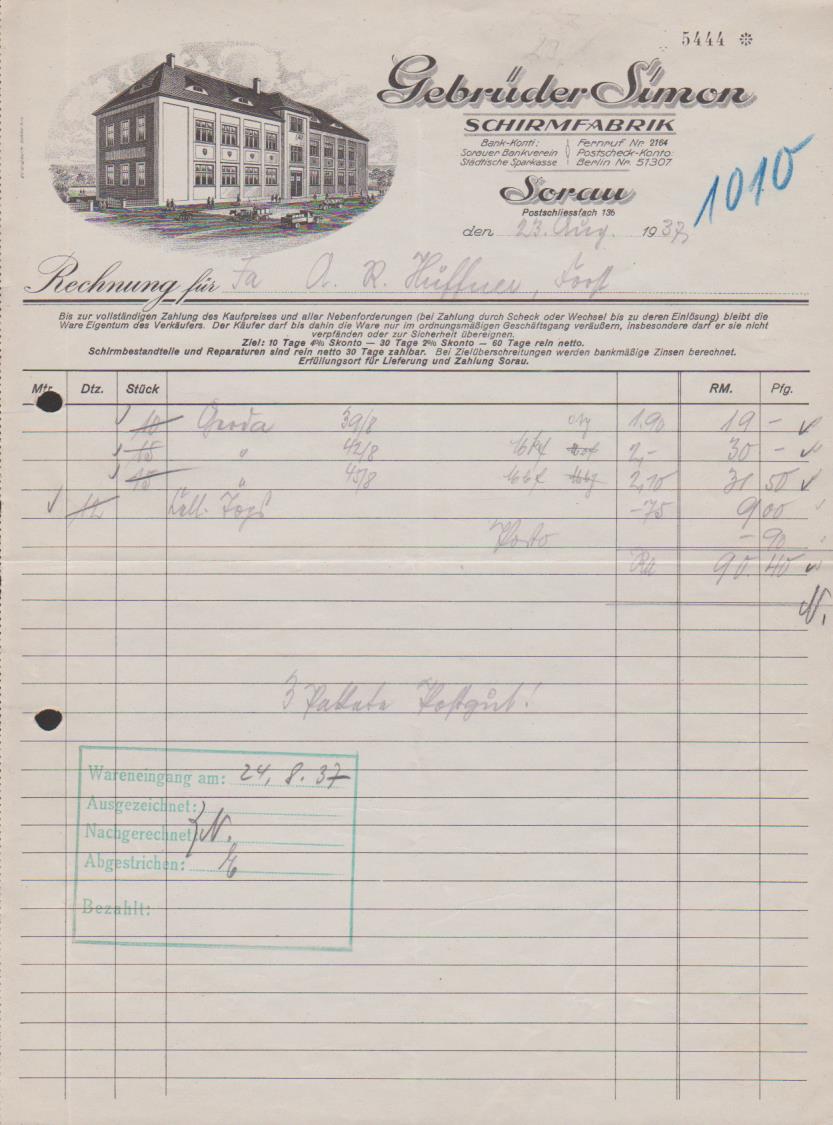 5444 ❊
Gebrüder Simon
SCHIRMFABRIK
Bank-Konti: Fernruf Nr. 2164
Sorauer Bankverein Postscheck-Konto:
Städtische Sparkasse Berlin Nr. 51307
Sorau
Postschliessfach 136
1010
den 23. Aug. 1937
Rechnung für Fa A. R. Hüffner, Forst
Bis zur vollständigen Zahlung des Kaufpreises und aller Nebenforderungen (bei Zahlung durch Scheck oder Wechsel bis zu deren Einlösung) bleibt die
Ware Eigentum des Verkäufers. Der Käufer darf bis dahin die Ware nur im ordnungsmäßigen Geschäftsgang veräußern, insbesondere darf er sie nicht
verpfänden oder zur Sicherheit übereignen.
Ziel: 10 Tage 4% Skonto — 30 Tage 2% Skonto — 60 Tage rein netto.
Schirmbestandteile und Reparaturen sind rein netto 30 Tage zahlbar. Bei Zielüberschreitungen werden bankmäßige Zinsen berechnet.
Erfüllungsort für Lieferung und Zahlung Sorau.
Mtr. Dtz. Stück RM. Pfg.
10 39/8 1.90 19 -
15 " 42/8 2,- 30 -
15 " 45/8 2,10 31 50
12 -75 9 00
Porto - 90
90. 40
N.
3 Pakete Postgut!
Wareneingang am: 24. 8. 37
Ausgezeichnet:
Nachgerechnet N.
Abgestrichen:
Bezahlt: